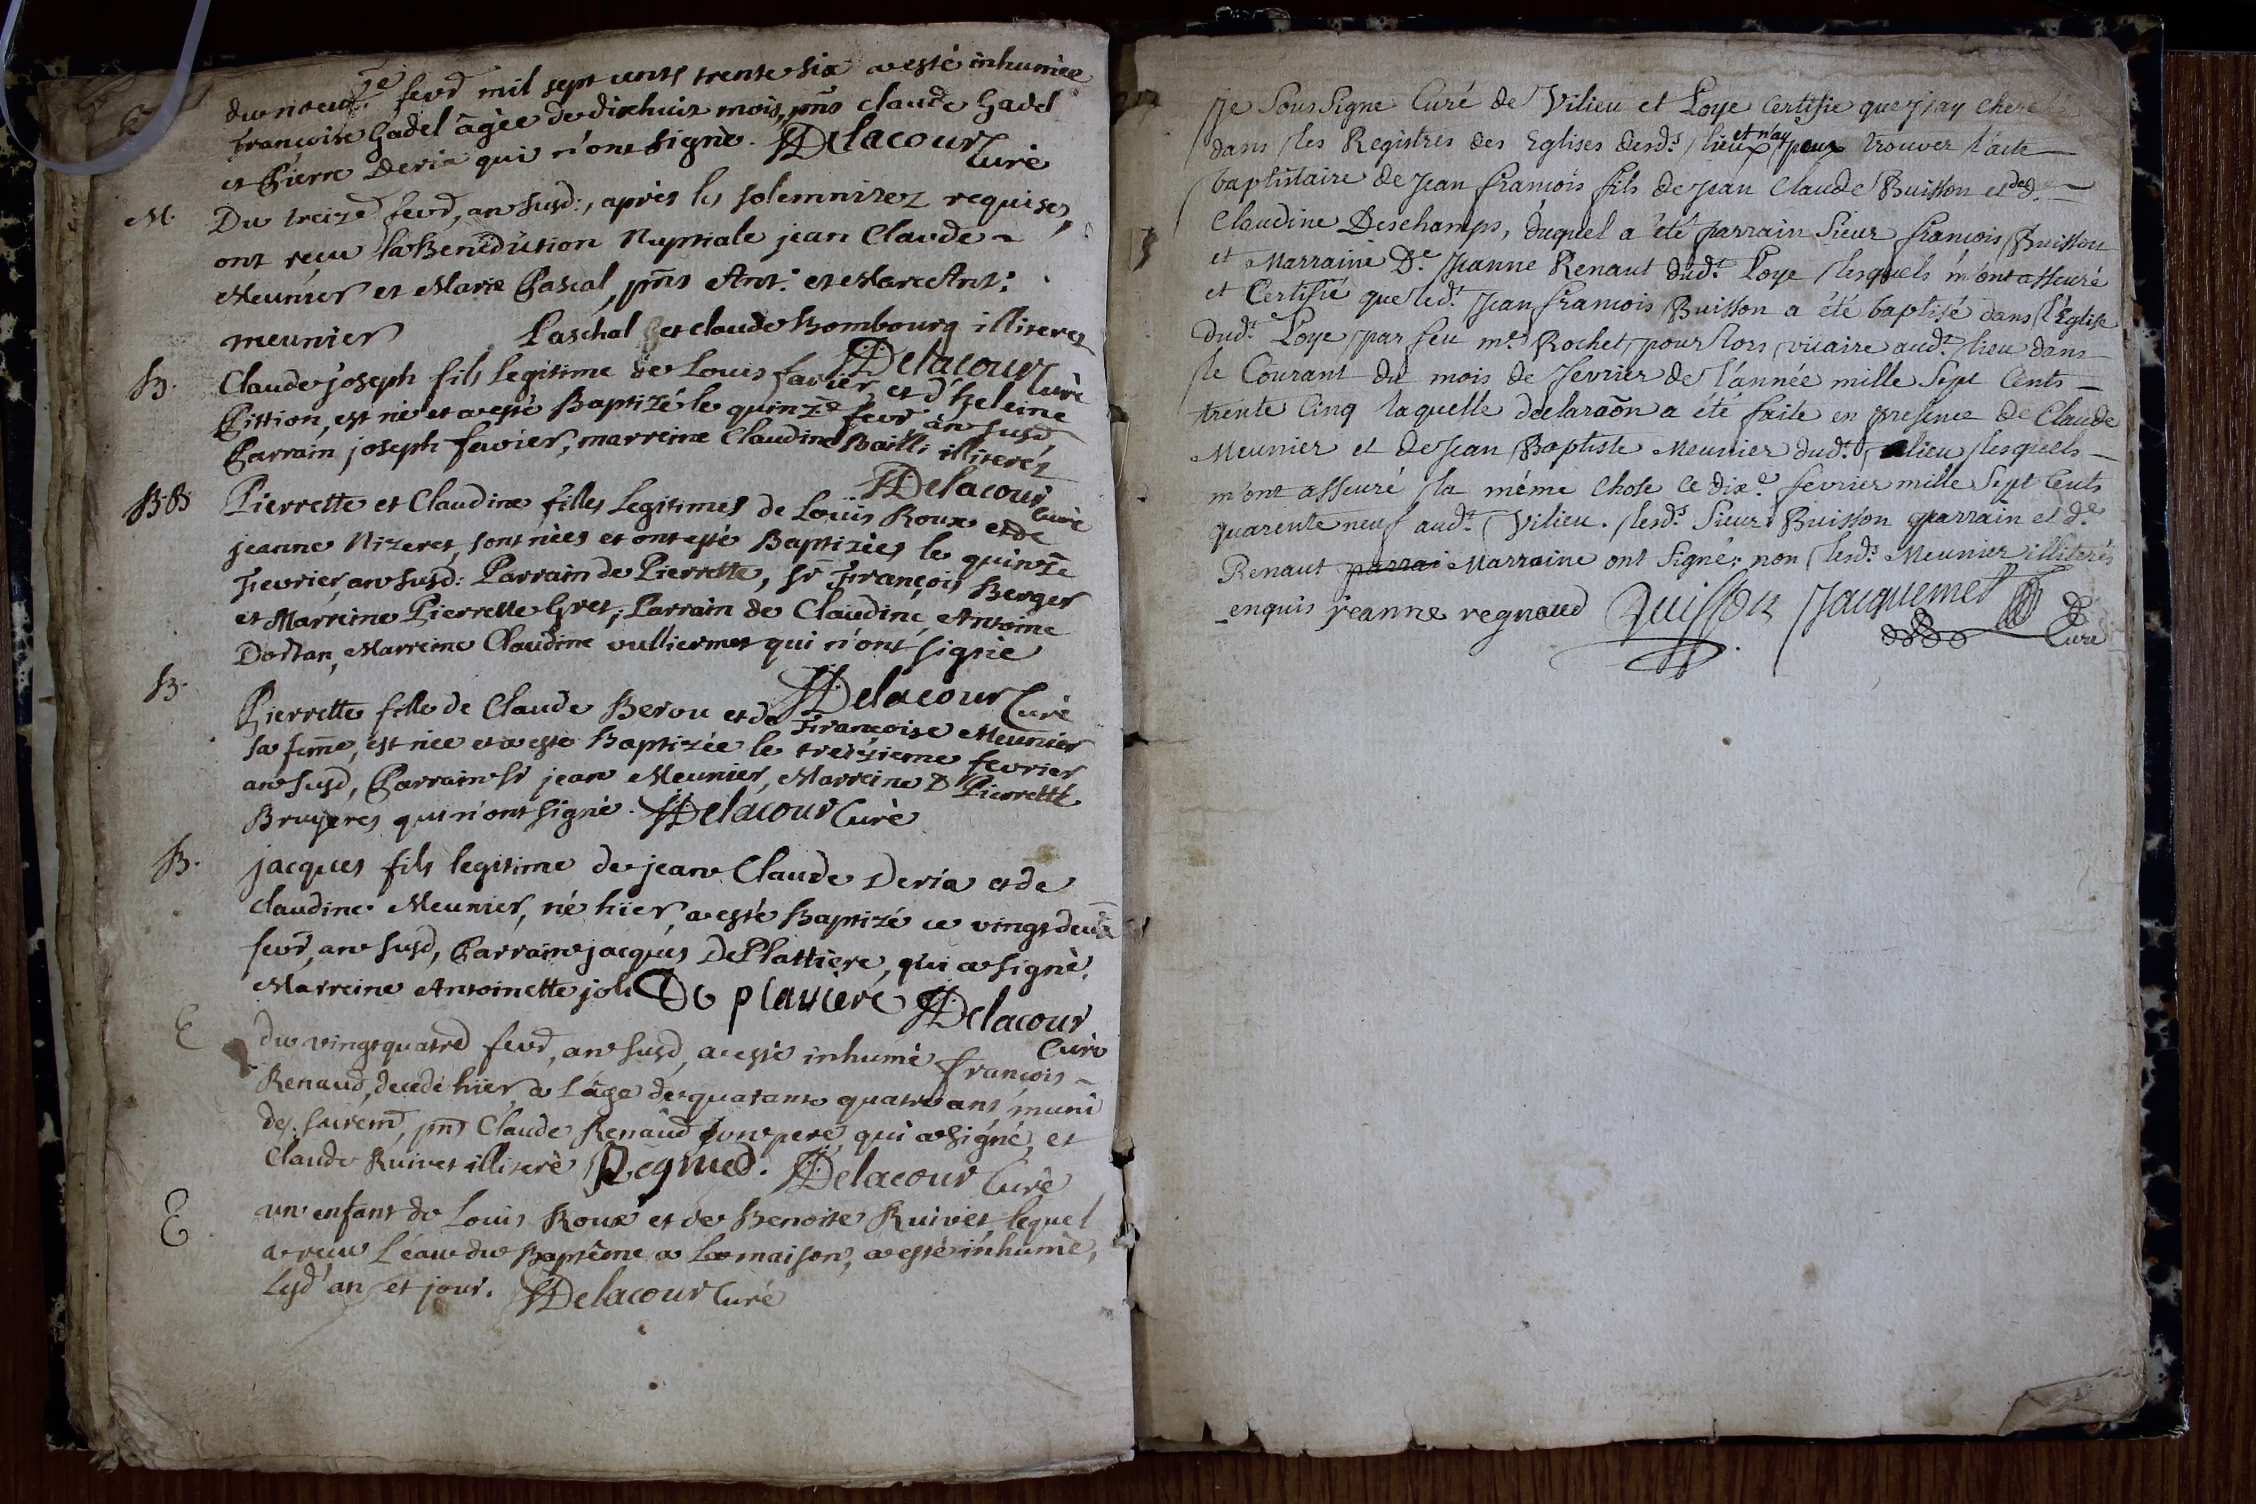 du neufe fevd mil sept cents trente six a esté inhumée
françoise Gadel âgée de dixhuit mois, pñs claude Gadel
et Pierre Deria qui n'ont signé. Delacour Curé
M. Du treize fevd, an susd:, après les solemnitez requises,
ont reçu la Benediction Nuptiale jean Claude
Meunier et Marie Pascal, pñts Ant: et Marc Ant:
meunier Paschal et claude Bombourg illiterez
Delacour Curé
B. Claude joseph fils legitime de Louis favier, et d'heleine
Pittion, est né et a esté Baptizé le quinze fevd an susd,
Parrain joseph favier, marreine Claudine Bailli illiterez
Delacour Curé
B.B. Pierrette et Claudine filles Legitimes de Loüis Roux et de
jeanne Nizeret, sont nées et ont esté Baptizées le quinze
Fevrier, an susd: Parrain de Pierrette, sr François Berger
et Marreine Pierrette Gret, Parrain de Claudine, Antoine
Dortan, Marreine Claudine vulliermet qui n'ont signé
Delacour Curé
B. Pierrette fille de Claude Berou et de Françoise Meunier
sa feme, est née et a esté Baptizée le treizieme fevrier
an susd, Parrain sr jean Meunier, Marreine D Pierrette
Bruyeres qui n'ont signé. Delacour Curé
B. jacques fils legitime de jean Claude Deria et de
claudine Meunier, né hier, a esté Baptizé ce vingt deux
fevd, an susd, Parrain jacques De Plattiere, qui a signé,
Marreine Antoinette joli De plattiere Delacour
Curé
E du vingt quatre fevd, an susd, a esté inhumé françois
Renaud, decedé hier, a l'âge de quarante quatre ans muni
des sacremd, pñs Claude Renaud son pere, qui a signé, et
Claude Ruivet illiteré Regnud. Delacour Curé
E un enfant de Louis Roux et de Benoite Ruivet, lequel
a reçu l'eau du Baptême a la maison, a esté inhumé,
lesd' an et jour. Delacour Curé
Je Sous Signe Curé de Vilieu et Loye certifie que j'ay cherché
dans les Registres des Eglises desds. lieux et n'ay peux trouver l'acte
baptistaire de Jean francois fils de Jean Claude Buisson et de de.
Claudine Deschamps, duquel a été parrain Sieur francois Buisson
et Marraine De. Jeanne Renaut dudt. Loye lesquels m'ont asseuré
et Certifié que ledt. Jean francois Buisson a été baptisé dans l'Eglise
dudt. Loye par feu mre Rochet pour lors vicaire audt. lieu dans
le Courant du mois de fevrier de l'année mille Sept Cents
trente Cinq laquelle declaraõn a été faite en presence de Claude
Meunier et de Jean Baptiste Meunier dudt. lieu lesquels
m'ont asseuré la même chose ce dixe. fevrier mille Sept Cents
quarente neuf audt. Vilieu. lesds. Sieur Buisson parrain et de.
Renaut parrai Marraine ont Signé; non lesds. Meunier illiterés
enquis jeanne regnaud Buisson Jacquemet
Curé